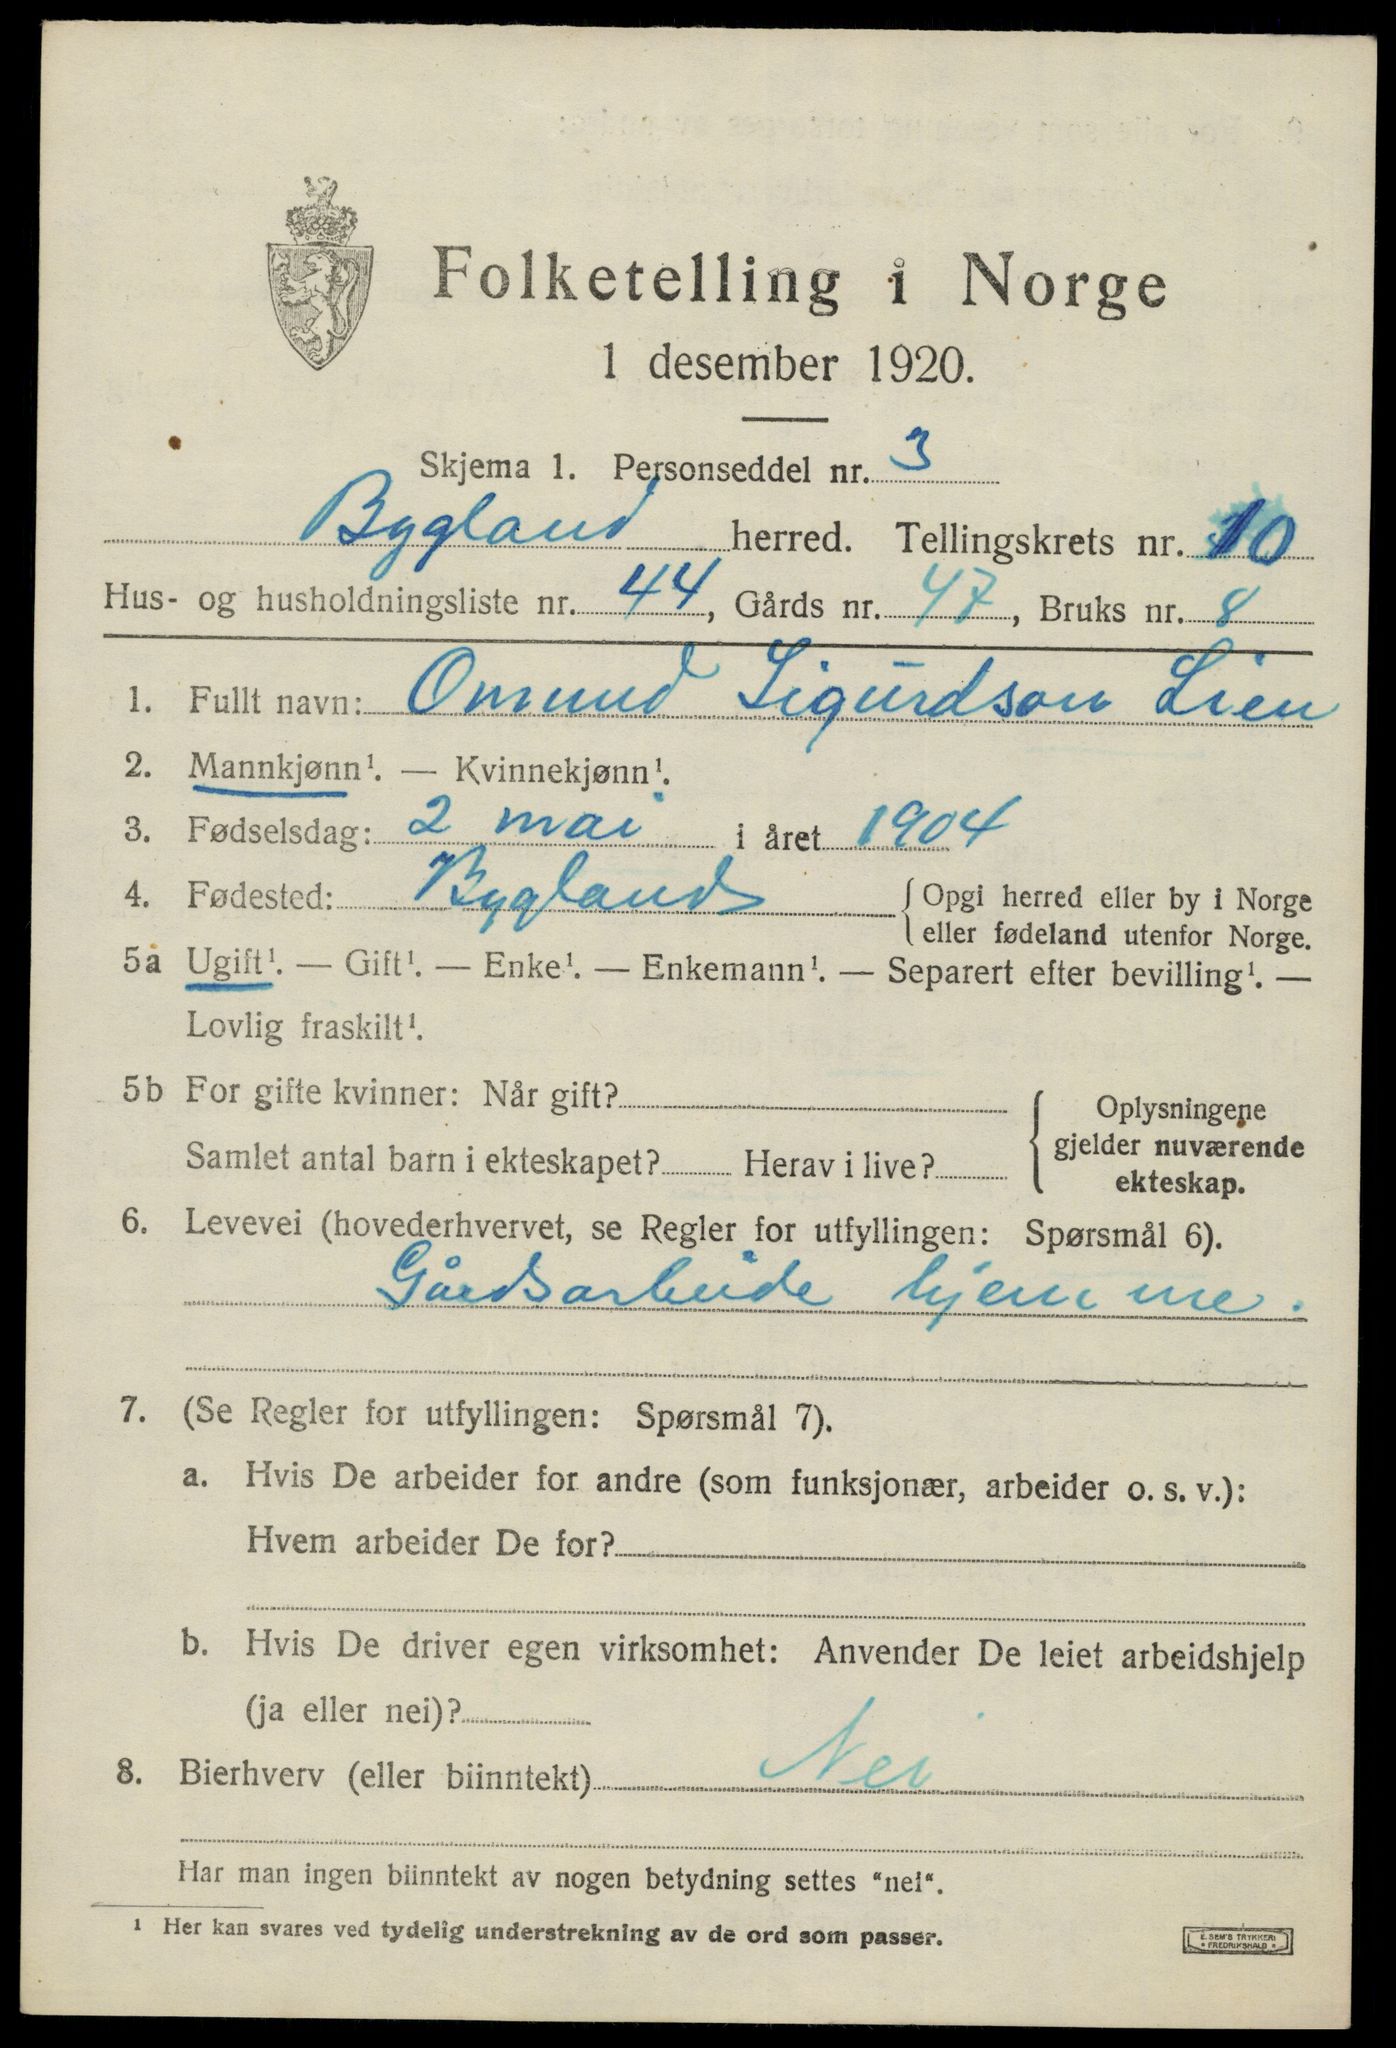 Folketelling i Norge
1 desember 1920.
Skjema 1. Personseddel nr. 3
Bygland herred. Tellingskrets nr. 10
Hus- og husholdningsliste nr. 44, Gårds nr. 47, Bruks nr. 8
1. Fullt navn: Omund Sigurdson Lien
2. Mannkjønn¹. — Kvinnekjønn¹.
3. Fødselsdag: 2 mai i året 1904
4. Fødested: Bygland { Opgi herred eller by i Norge
eller fødeland utenfor Norge.
5a Ugift¹. — Gift¹. — Enke¹. — Enkemann¹. — Separert efter bevilling¹. —
Lovlig fraskilt¹.
5b For gifte kvinner: Når gift?
Samlet antal barn i ekteskapet? Herav i live?
{ Oplysningene
gjelder nuværende
ekteskap.
6. Levevei (hovederhvervet, se Regler for utfyllingen: Spørsmål 6).
Gårdsarbeide hjemme.
7. (Se Regler for utfyllingen: Spørsmål 7).
a. Hvis De arbeider for andre (som funksjonær, arbeider o. s. v.):
Hvem arbeider De for?
b. Hvis De driver egen virksomhet: Anvender De leiet arbeidshjelp
(ja eller nei)?
8. Bierhverv (eller biinntekt) Nei
Har man ingen biinntekt av nogen betydning settes "nei".
¹ Her kan svares ved tydelig understrekning av de ord som passer.
E. SEM'S TRYKKERI
* FREDRIKSHALD *